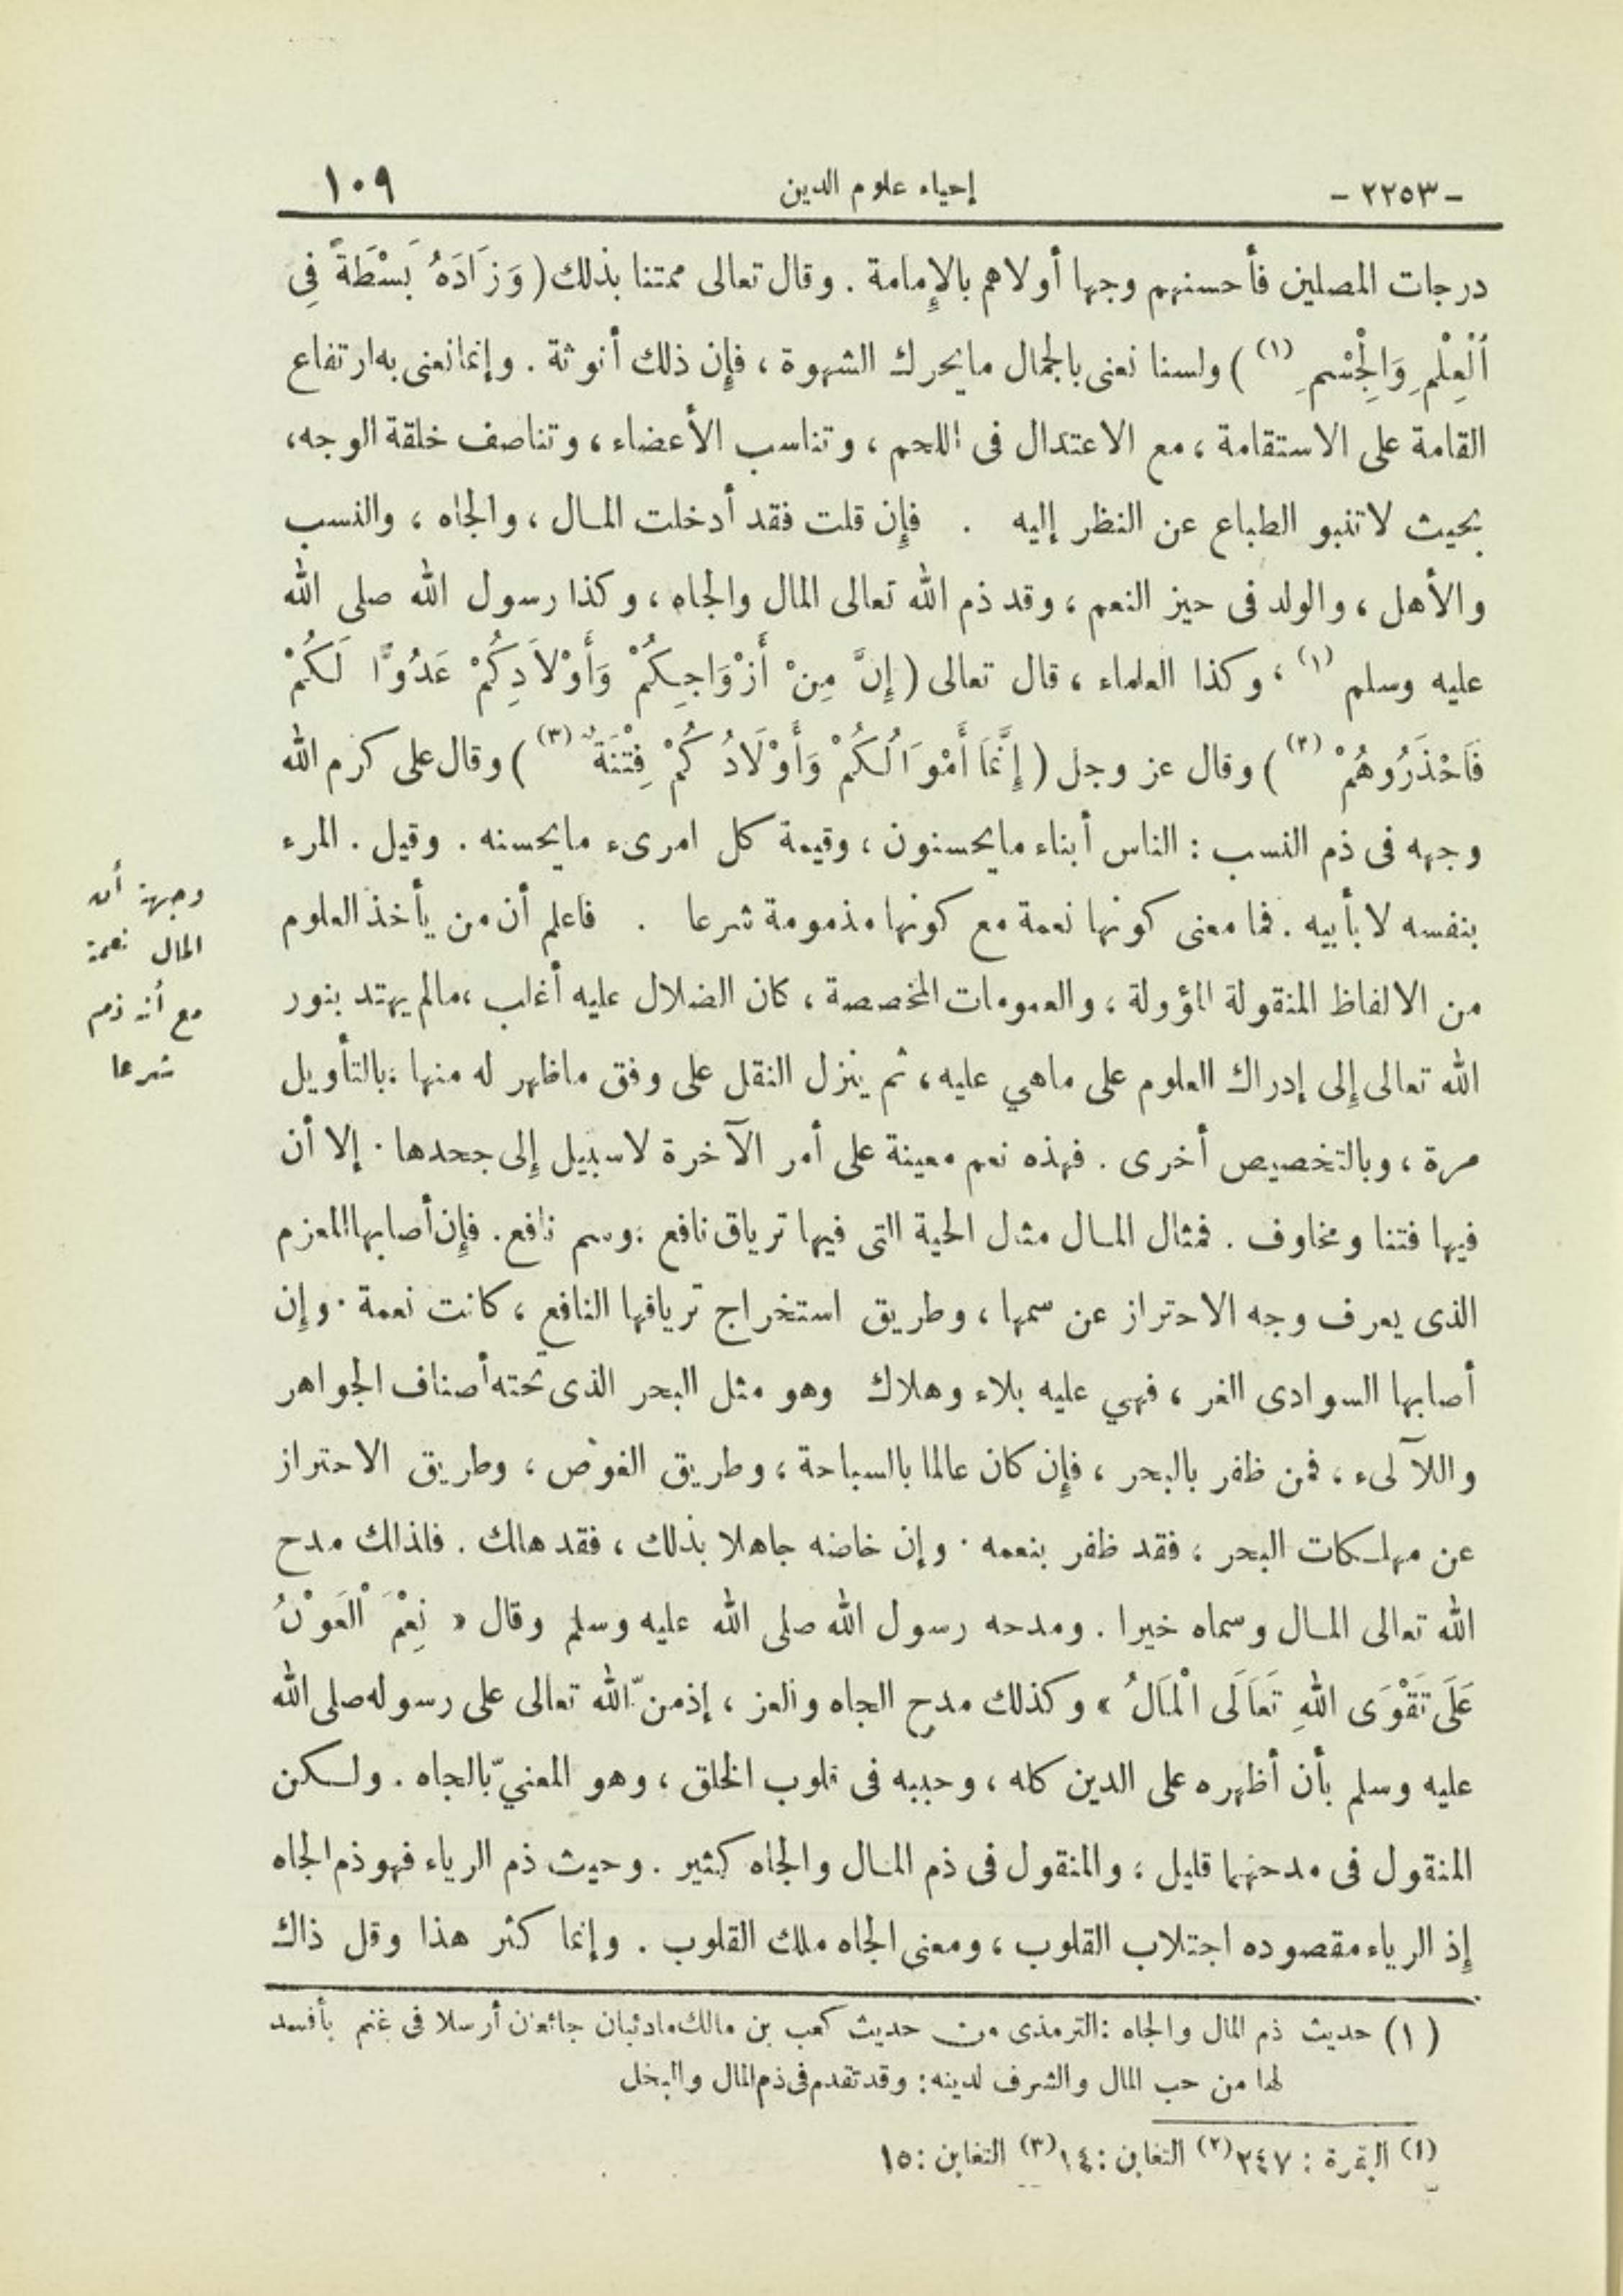 -٢٢٥٣- إحياء علوم الدين ١٠٩
درجات المصلين فأحسنهم وجها أولاهم بالإمامة . وقال تعالى ممتنا بذلك ( وَزَادَهُ بَسْطَةً فِى
اَلْعِلْمِ وَالْجِسْمِ (١) ) ولسنا نعنى بالجمال مايحرك الشهوة ، فإن ذلك أنوثة . وإنما نعنى به ارتفاع
القامة على الاستقامة ، مع الاعتدال فى اللحم ، وتناسب الأعضاء ، وتناصف خلقة الوجه،
بحيث لاتنبو الطباع عن النظر إليه . فإن قلت فقد أدخلت المـال ، والجاه ، والنسب
والأهل ، والولد فى حيز النعم ، وقد ذم الله تعالى المال والجاه ، وكذا رسول الله صلى الله
عليه وسلم (١) ، وكذا العلماء ، قال تعالى ( إِنَّ مِنْ أَزْوَاجِكُمْ وَأَوْلاَدِكُمْ عَدُوًّا لَكُمْ
فَاحْذَرُوهُمْ (٢) ) وقال عز وجل ( إِنَّمَا أَمْوَالُكُمْ وَأَوْلَادُكُمْ فِتْنَةٌ (٣) ) وقال على كرم الله
وجهه فى ذم النسب : الناس أبناء مايحسنون ، وقيمة كل امرىء مايحسنه . وقيل . المرء
بنفسه لا بأبيه . فما معنى كونها نعمة مع كونها مذمومة شرعا . فاعلم أن من يأخذ العلوم
من الالفاظ المنقولة المؤولة ، والعمومات المخصصة ، كان الضلال عليه أغلب ،مالم يهتد بنور
الله تعالى إلى إدراك العلوم على ماهي عليه ، ثم ينزل النقل على وفق ماظهر له منها ، بالتأويل
مرة ، وبالتخصيص أخرى . فهذه نعم معينة على أمر الآخرة لاسبيل إلى جحدها . إلا أن
فيها فتنا ومخاوف . فمثال المـال مثل الحية التى فيها ترياق نافع ، وسم نافع . فإن أصابها المعزم
الذى يعرف وجه الاحتراز عن سمها ، وطريق استخراج ترياقها النافع ، كانت نعمة . وإن
أصابها السوادى الغر ، فهي عليه بلاء وهلاك وهو مثل البحر الذى تحته أصناف الجواهر
واللآلىء ، فمن ظفر بالبحر ، فإن كان عالما بالسباحة ، وطريق الغوص ، وطريق الاحتراز
عن مهلـكات البحر ، فقد ظفر بنعمه . وإن خاضه جاهلا بذلك ، فقد هلك . فلذلك مدح
الله تعالى المـال وسماه خيرا . ومدحه رسول الله صلى الله عليه وسلم وقال « نِعْمَ الْعَوْنُ
عَلَى تَقْوَى اللهِ تَعَالَى الْمَالُ » وكذلك مدح الجاه والعز ، إذمنّ الله تعالى على رسوله صلى الله
عليه وسلم بأن أظهره على الدين كله ، وحببه فى قلوب الخلق ، وهو المعنيّ بالجاه . ولـكن
المنقول فى مدحهما قليل ، والمنقول فى ذم المـال والجاه كثير . وحيث ذم الرياء فهو ذم الجاه
إذ الرياء مقصوده اجتلاب القلوب ، ومعنى الجاه ملك القلوب . وإنما كثر هذا وقل ذاك
وجهة أن
المال نعمة
مع أنه ذم
شرعا
(١) حديث ذم المال والجاه :الترمذى من حديث كعب بن مالك ماذئبان جائعان أرسلا فى غنم بأفسد
لها من حب المال والشرف لدينه: وقد تقدم فى ذم المال والبخل
(١) البقرة : ٢٤٧ (٢) التغابن : ١٤ (٣) التغابن : ١٥